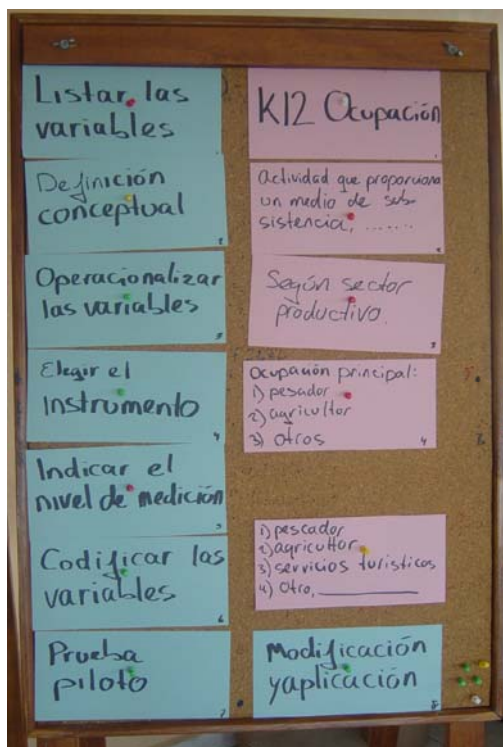 Listar las
variables
Definición
conceptual
2
Operacionalizar
las variables
3
Elegir el
instrumento
4
Indicar el
nivel de medición
5
Codificar las
variables
6
Prueba
piloto
7
K12 Ocupación
Actividad que proporciona
un medio de sub-
sistencia, ......
Según sector
productivo.
3
Ocupación principal:
1) pesador
2) agricultor
3) otros
4
1) pescador
2) agricultor
3) servicios turisticos
4) Otro, __________
Modificación
y aplicación
8